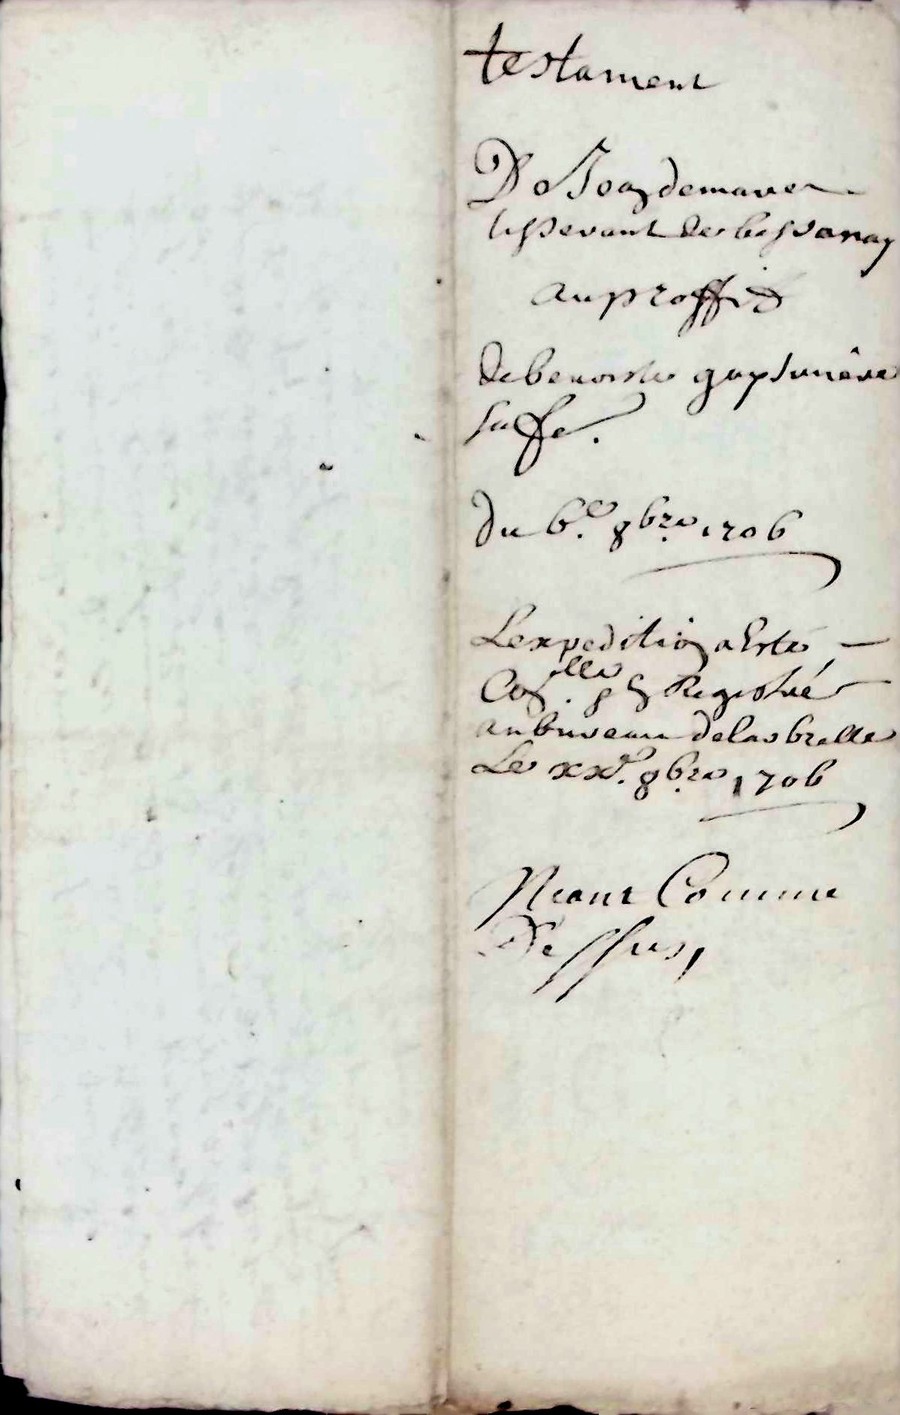 testament
De Jean demare
tisserant de bessanay
au proffit
de benoiste guy
sa fe.
du 6.e 8bre 1706
L'expedition a esté
Coll. & Registré
au bureau de la brelle
Le xxe. 8bre 1706
Neant Comme
Dessus,